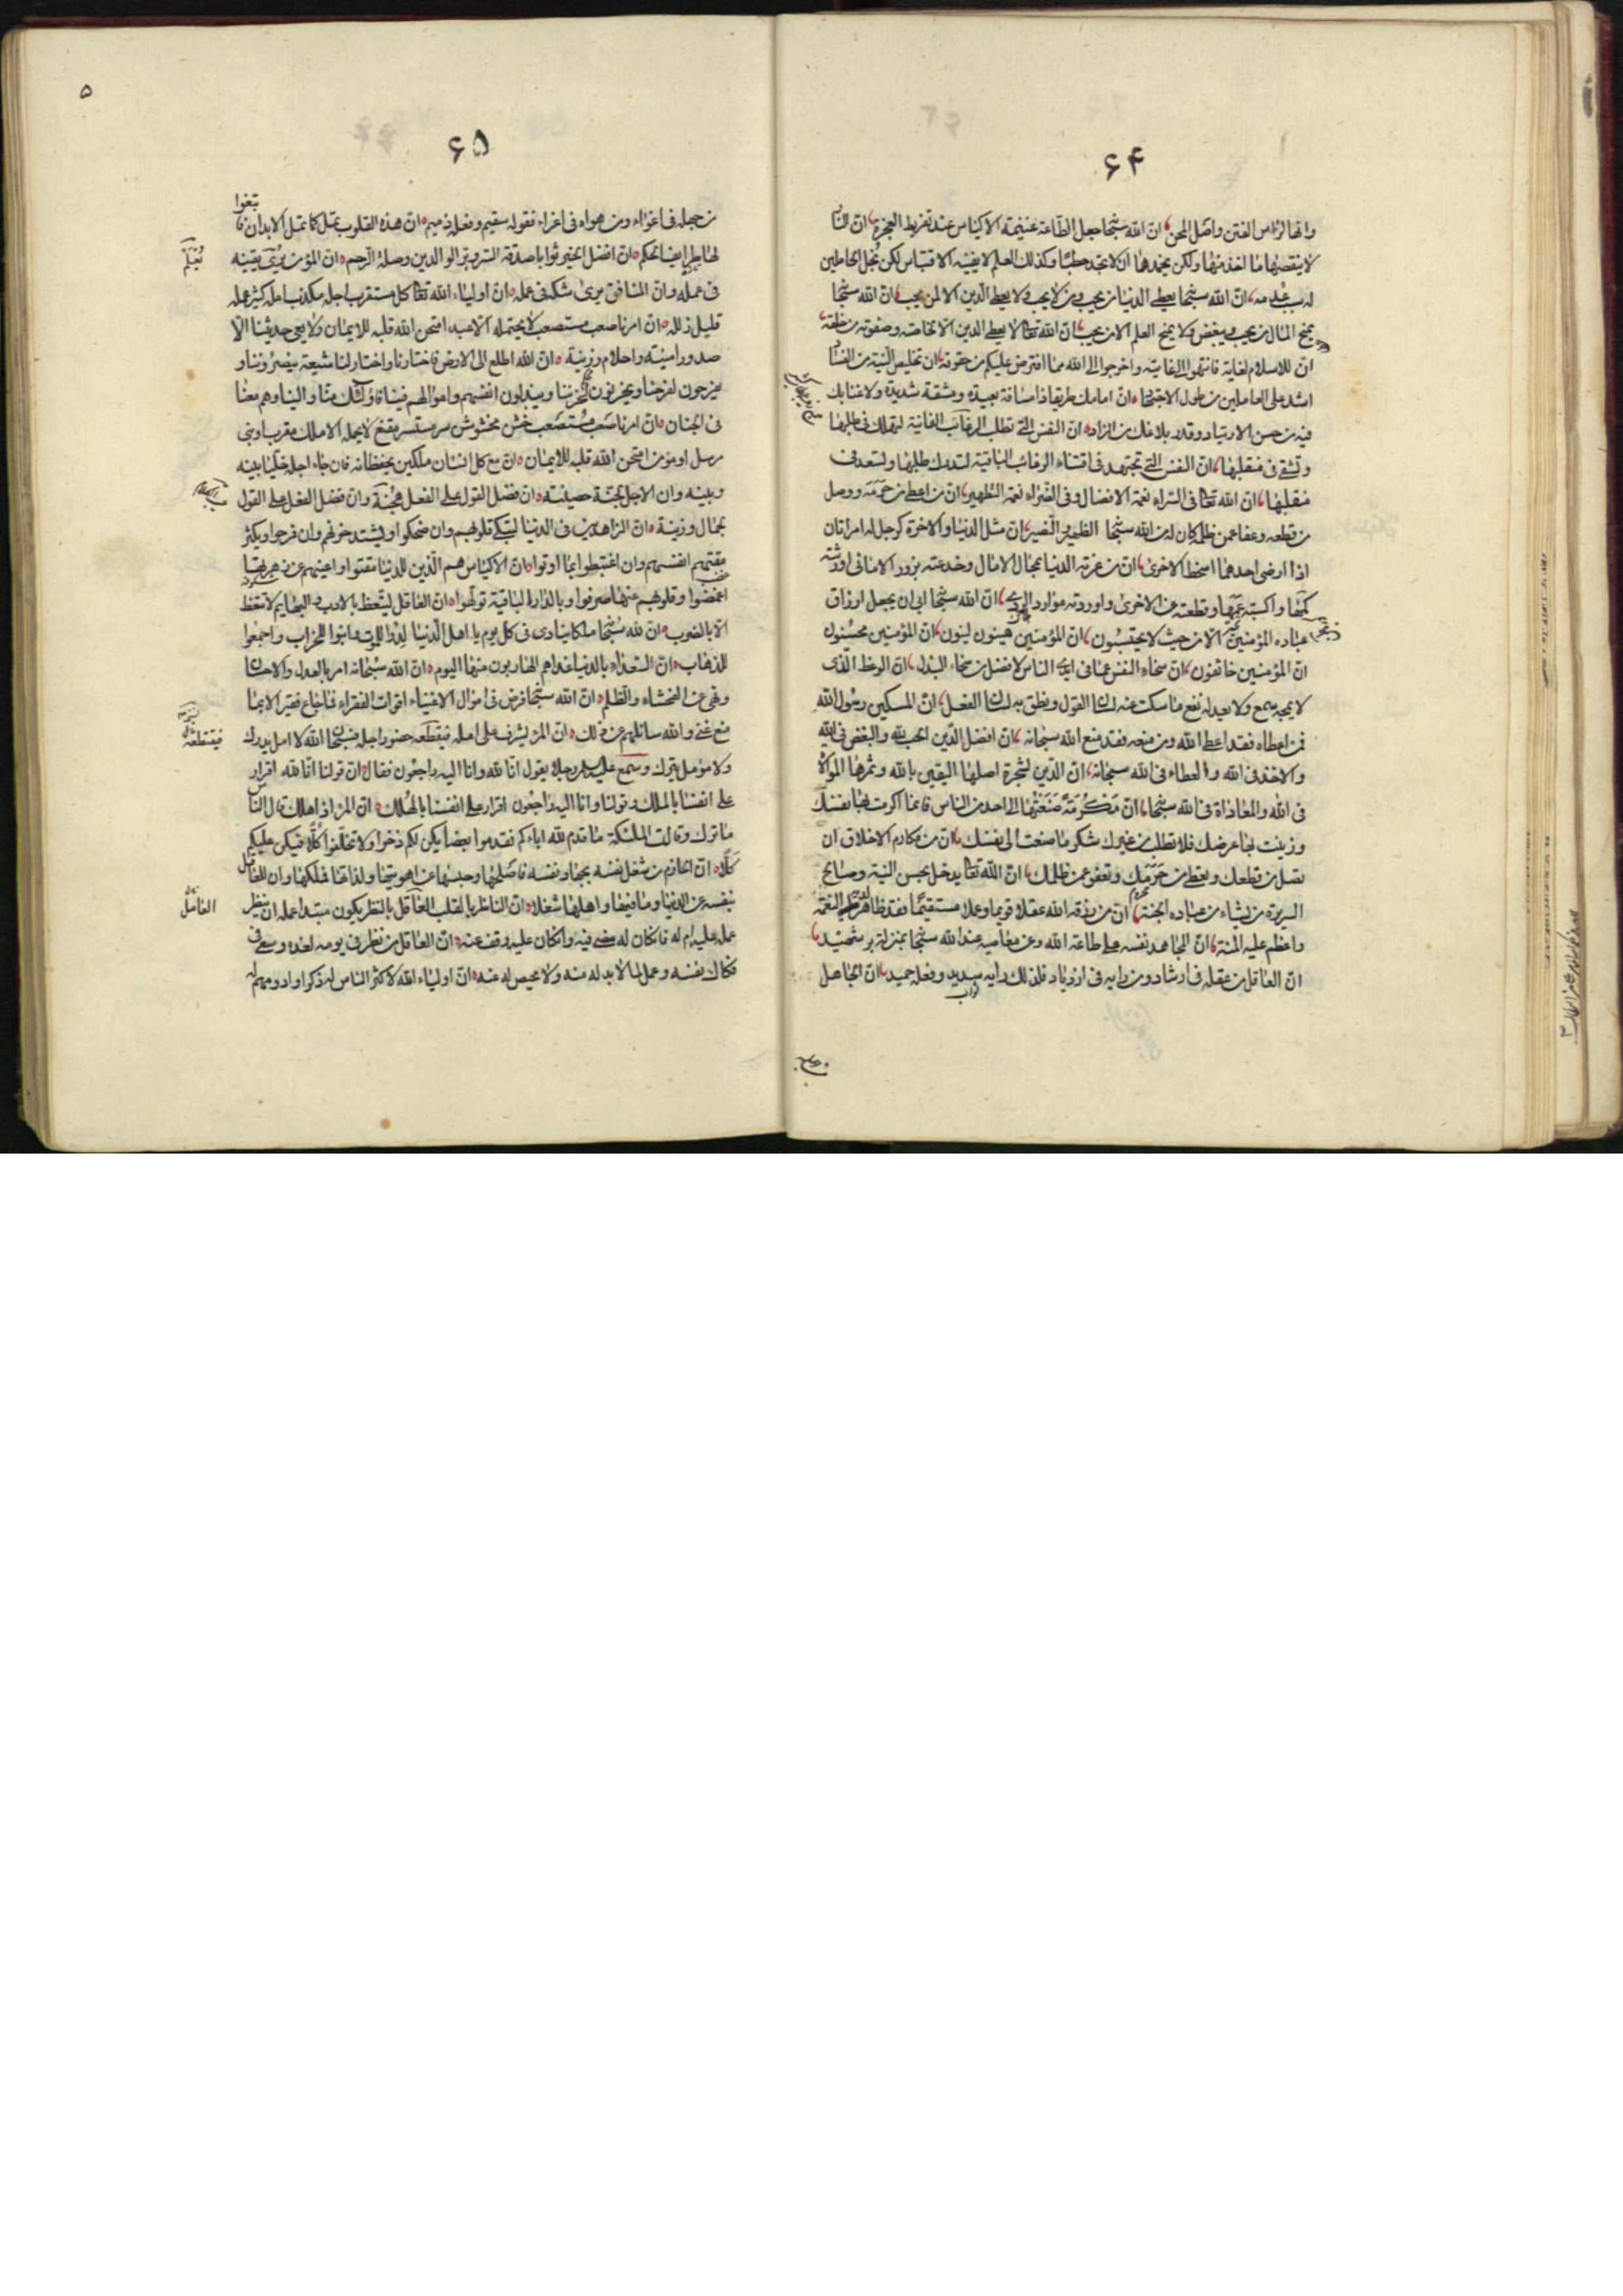 ۶۴
وانها لراس الفتن واصل المحن ان الله سبحا جعل الطاعة غنيمة الاكياس عند تفريط العجزة ان النا
لا ينقصها ما اخذ منها ولكن يخمدها ان لا تجد حطبا وكذلك العلم لا يفنيه الاقتباس لكن بخل الحاملين
له سبب عدمه ان الله سبحا يعطي الدنيا من يحب ومن لا يحب ولا يعطي الدين الا لمن يحب ان الله سبحا
يمنح المال من يحب ويبغض ولا يمنح العلم الا من يحب ان الله تعا لا يعطي الدين الا لخاصته وصفوته من خلقه
ان للاسلام لغاية فانتهوا الى غايته واخرجوا الى الله مما افترض عليكم من حقوقه ان تخليص النية من الفسا
اشد على العاملين من طول الاجتها ان امامك طريقا ذا مسافة بعيدة ومشقة شديدة ولا غنا بك
فيه من حسن الارتياد وقدر بلاغك من الزاد ان النفس التي تطلب الرغائب الفانية لتهلك في طلبها
وتشقى في منقلبها ان النفس التي تجتهد في اقتناء الرغائب الباقية لتدرك طلبها وتسعد في
منقلبها ان الله تعا في السراء نعمة الافضال وفي الضراء نعمة التطهير ان من اعطى من حرمه ووصل
من قطعه وعفا عمن ظلمه كان له من الله سبحا الظهير والنصير ان مثل الدنيا والاخرة كرجل له امراتان
اذا ارضى احدهما اسخط الاخرى ان من غرته الدنيا بمحال الامال وخدعته بزور الاماني اورثته
كمها والبسته عمى وقطعته عن الاخرى واوردته موارد الردى ان الله سبحا ابى ان يجعل ارزاق
عباده المؤمنين الا من حيث لا يحتسبون ان المؤمنين هينون لينون ان المؤمنين محسنون
ان المؤمنين خائفون ان سخاء النفس عما في ايدي الناس لافضل من سخاء البذل ان الوعظ الذي
لا يمجه سمع ولا يعدله نفع ما سكت عنه لسان القول ونطق به لسان الفعل ان المسكين رسول الله
فمن اعطاه فقد اعطى الله ومن منعه فقد منع الله سبحانه ان افضل الدين الحب لله والبغض في الله
والاخذ في الله والعطاء في الله سبحانه ان الدين لشجرة اصلها اليقين بالله وثمرها الموالاة
في الله والمعاداة في الله سبحا ان مكرمة صنعتها الى احد من الناس فانما اكرمت بها نفسك
وزينت بها عرضك فلا تطلب من غيرك شكر ما صنعت الى نفسك ان من مكارم الاخلاق ان
تصل من قطعك وتعطي من حرمك وتعفو عن ظلمك ان الله تعا يدخل بحسن النية وصالح
السريرة من يشاء من عباده الجنة ان من رزقه الله عقلا قويما وعملا مستقيما فقد ظاهر لديه النعمة
واعظم عليه المنة ان المجاهد نفسه على طاعة الله وعن معاصيه عند الله سبحا بمنزلة بر شهيد
ان العاقل من عقله في ارشاد ومن رايه في ازدياد فلذلك رايه سديد وفعله حميد ان الجاهل
۶۵
۵
من جهله في اغواء ومن هواه في اغراء فقوله سقيم وفعله ذميم ان هذه القلوب تمل كما تمل الابدان فا
بتغوا
لها طرايف الحكم ان افضل الخير ثوابا صدقة السر وبر الوالدين وصلة الرحم ان المؤمن يرى يقينه
في عمله وان المنافق يرى شكه في عمله ان اولياء الله تعا كل مستقرب اجله مكذب امله كثير عمله
قليل زلله ان امرنا صعب مستصعب لا يحتمله الا عبد امتحن الله قلبه للايمان ولا يعي حديثنا الا
صدور امينة واحلام رزينة ان الله اطلع الى الارض فاختارنا واختار لنا شيعة ينصروننا و
يفرحون لفرحنا ويحزنون لحزننا ويبذلون انفسهم واموالهم فينا فاولئك منا والينا وهم معنا
في الجنان ان امرنا صعب مستصعب خشن مخشوش سر مستسر مقنع لا يحمله الا ملك مقرب او نبي
مرسل او مؤمن امتحن الله قلبه للايمان ان مع كل انسان ملكين يحفظانه فان جاء اجله خليا بينه
وبينه وان الاجل لجنة حصينة ان فضل القول على الفعل هجنة وان فضل الفعل على القول
لجمال وزينة ان الزاهدين في الدنيا لتبكي قلوبهم وان ضحكوا ويشتد حزنهم وان فرحوا ويكثر
مقتهم انفسهم وان اغتبطوا بما اوتوا ان الاكياس هم الذين للدنيا مقتوا واعينهم عن زهرتها
اغمضوا وقلوبهم عنها صرفوا وبالدار الباقية تولهوا ان العاقل ليتعظ بالادب والبهايم لا تتعظ
الا بالضرب ان لله سبحا ملكا ينادي في كل يوم يا اهل الدنيا لدوا للموت وابنوا للخراب واجمعوا
للذهاب ان السعداء بالدنيا غدا هم الهاربون منها اليوم ان الله سبحانه امر بالعدل والاحسان
ونهى عن الفحشاء والظلم ان الله سبحا فرض في اموال الاغنياء اقوات الفقراء فما جاع فقير الا بما
منع غني والله سائلهم عن ذلك ان المرء يشرف على امله فيقطعه حضور اجله فسبحان الله لا امل يدرك
ولا مؤمل يترك وسمع عليه السلم رجلا يقول انا لله وانا اليه راجعون فقال ان قولنا انا لله اقرار
على انفسنا بالملك وقولنا وانا اليه راجعون اقرار على انفسنا بالهلك ان المرء اذا هلك قال الناس
ما ترك وقالت الملئكة ما قدم لله اباءكم فقدموا بعضا يكن لكم ذخرا ولا تخلفوا كلا فيكن عليكم
كلا ان الحازم من شغل نفسه بجهاد نفسه فاصلحها وحبسها عن اهويتها ولذاتها فملكها وان للعاقل
بنفسه عن الدنيا وما فيها واهلها شغلا ان الناظر بالقلب العاقل بالنظر يكون مبتدا عمله ان ينظر
العامل
عمله عليه ام له فان كان له مضى فيه وان كان عليه وقف عنه ان العاقل من نظر في يومه لغده وسعى في
فكاك نفسه وعمل لما لا بد له منه ولا محيص له عنه ان اولياء الله لاكثر الناس له ذكرا وادومهم له